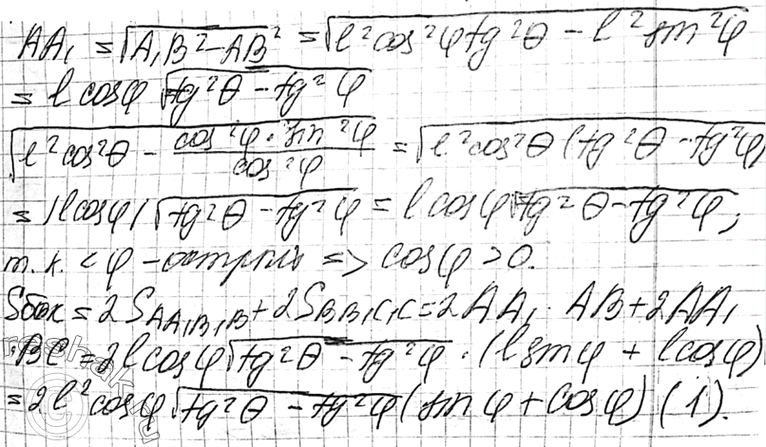 AA₁ = √(A₁B² − AB²) = √(l²cos²φtg²θ − l²sin²φ)
= l cosφ √(tg²θ − tg²φ)
√(l²cos²θ − cos²φ · sin²φ / cos²φ) = √(l²cos²θ (tg²θ − tg²φ)
= |lcosφ| √(tg²θ − tg²φ) = l cosφ √(tg²θ − tg²φ),
т.к. <φ – острый => cosφ > 0.
Sбок = 2S_AA₁B₁B + 2S_BB₁C₁C = 2AA₁ · AB + 2AA₁
· BC = 2l cosφ √(tg²θ − tg²φ) · (l sinφ + l cosφ)
= 2l² cosφ √(tg²θ − tg²φ) (sinφ + cosφ) (1).